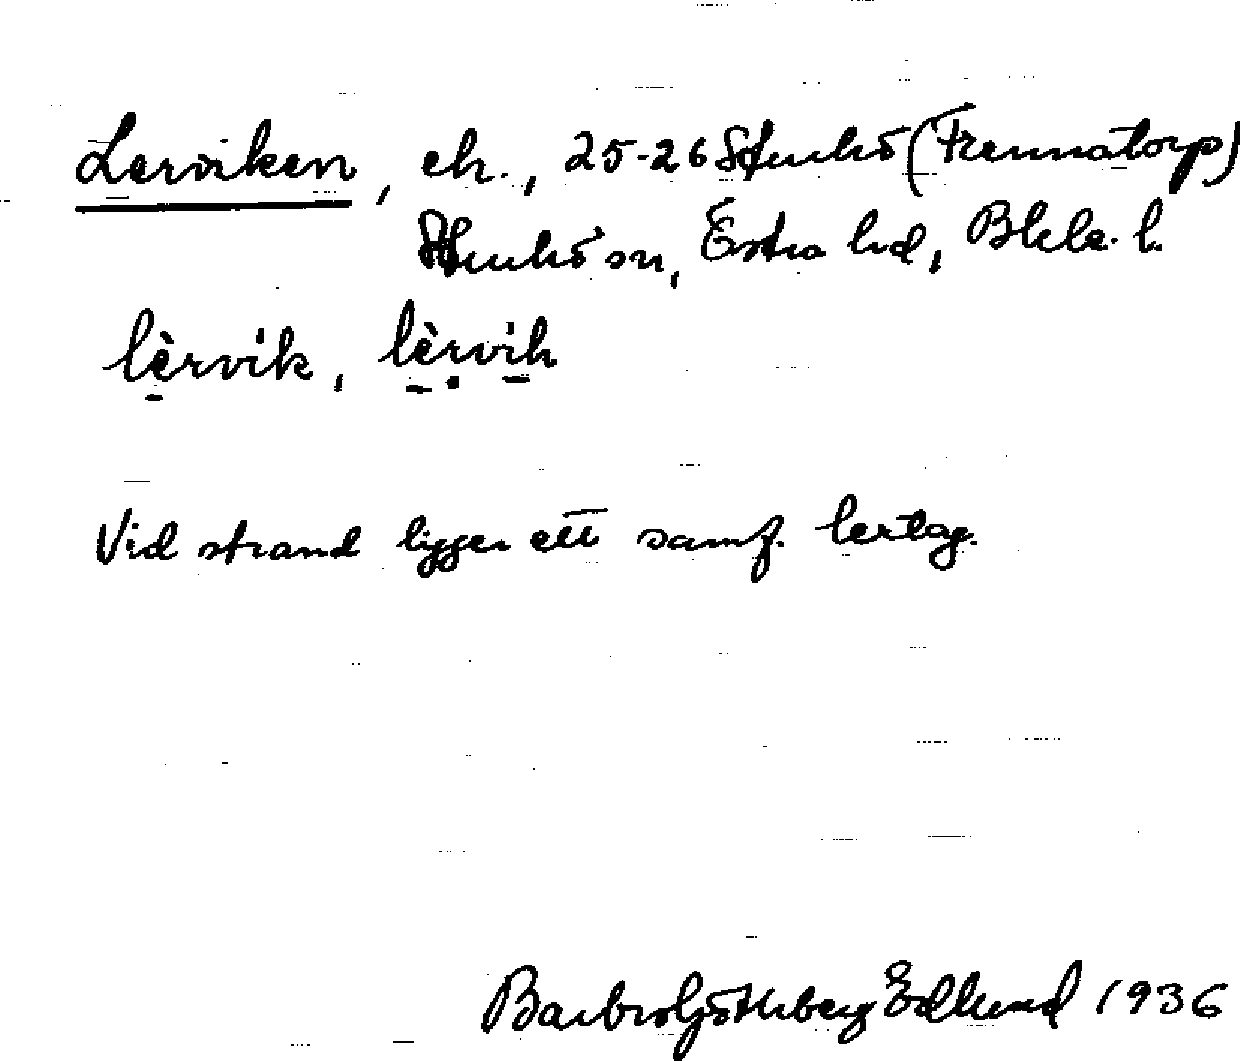 Lerviken, ek., 25-26 Sturkö (Tremmatorp)
Sturkö sn, Östra hd, Blek. l.
lèrvik, lèrvik
Vid strand ligger ett samf. lertag.
Barbro Götherberg Edlund 1936